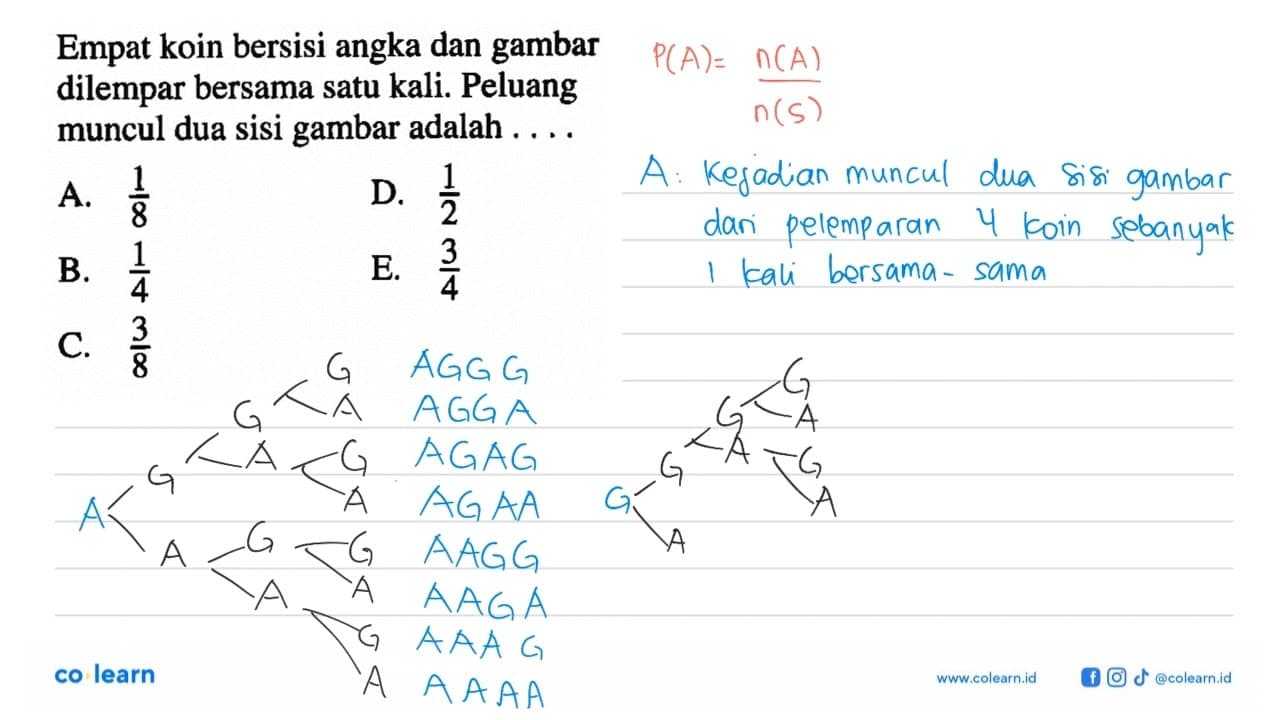 Empat koin bersisi angka dan gambar
dilempar bersama satu kali. Peluang
muncul dua sisi gambar adalah . . . .
A. 1/8
D. 1/2
B. 1/4
E. 3/4
C. 3/8
P(A) = n(A)/n(S)
A: Kejadian muncul dua sisi gambar
dari pelemparan 4 koin sebanyak
1 kali bersama-sama
G AGGG
G A AGGA
G A G AGAG
A A AGAA
A G G AAGG
A A AAGA
G AAAG
A AAAA
G
G A
G A G
G A
A
co learn
www.colearn.id
@colearn.id